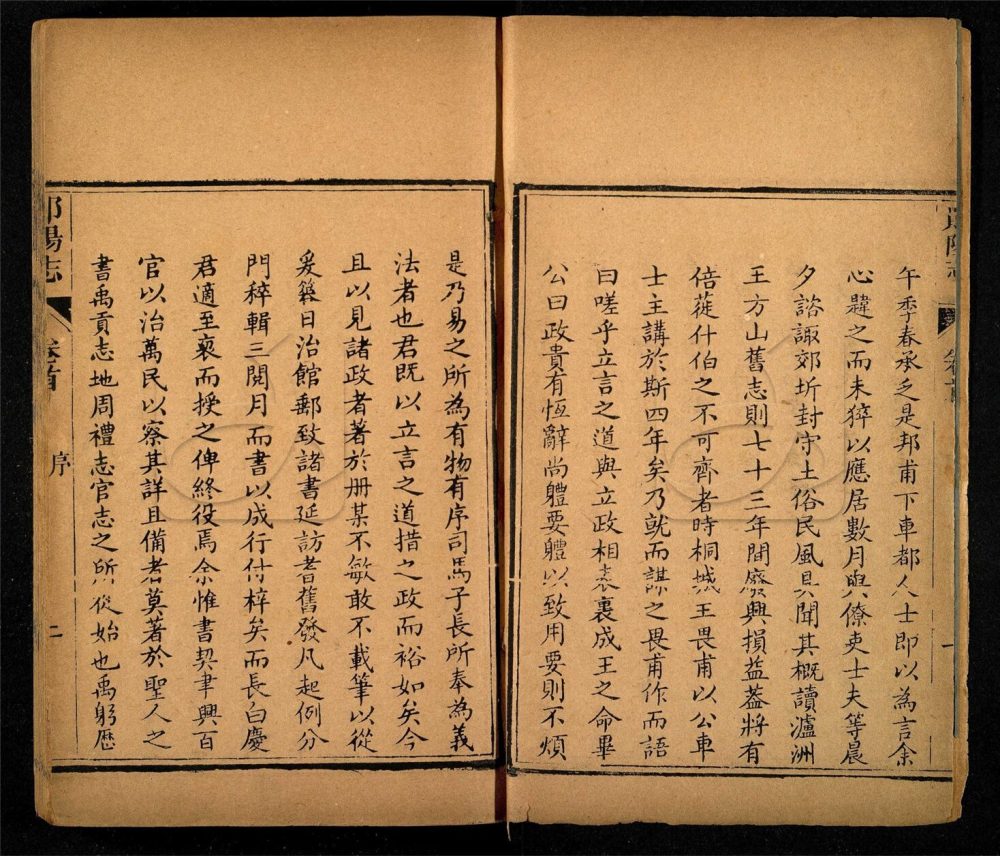 午季春承乏是邦甫下車都人士即以為言余
心韙之而未猝以應居數月與僚吏士夫等晨
夕諮諏郊圻封守土俗民風具聞其概讀瀘洲
王方山舊志則七十三年間廢興損益蓋將有
倍蓰什伯之不可齊者時桐城王畏甫以公車
士主講於斯四年矣乃就而謀之畏甫作而語
曰嗟乎立言之道與立政相表裏成王之命畢
公曰政貴有恆辭尚體要體以致用要則不煩
是乃易之所為有物有序司馬子長所奉為義
法者也君既以立言之道措之政而裕如矣今
且以見諸政者著於册某不敏敢不載筆以從
爰筮日治館郵致諸書延訪耆舊發凡起例分
門稡輯三閱月而書以成行付梓矣而長白慶
君適至裒而授之俾終役焉余惟書契聿興百
官以治萬民以察其詳且備者莫著於聖人之
書禹貢志地周禮志官志之所從始也禹躬歷
陽志
卷首
序
二